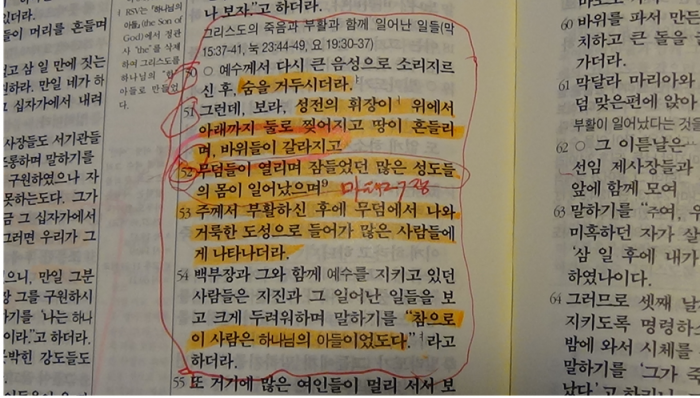 들이 머리를 흔들며
고 삼 일 만에 짓는
하라. 만일 네가 하
십자가에서 내려
사장들도 서기관들
롱하며 말하기를
구원하였으나 자
못하는도다. 그가
금 그 십자가에서
그러면 우리가 그
으니, 만일 그분
그를 구원하시
기를 '나는 하나
이라.'"고 하더라.
박힌 강도들도
RSV는 「하나님의
아들」(the Son of
God)에서 정관
사 "the"를 삭제
하여 그리스도를
하나님의 "한
아들로 만들었
다.
나 보자."고 하더라.
그리스도의 죽음과 부활과 함께 일어난 일들(막
15:37-41, 눅 23:44-49, 요 19:30-37)
50 ○ 예수께서 다시 큰 음성으로 소리지르
신 후, 숨을 거두시더라.
51 그런데, 보라, 성전의 휘장이 위에서
아래까지 둘로 찢어지고 땅이 흔들리
며, 바위들이 갈라지고
52 무덤들이 열리며 잠들었던 많은 성도들
의 몸이 일어났으며
마태27장
53 주께서 부활하신 후에 무덤에서 나와
거룩한 도성으로 들어가 많은 사람들에
게 나타나더라.
54 백부장과 그와 함께 예수를 지키고 있던
사람들은 지진과 그 일어난 일들을 보
고 크게 두려워하며 말하기를 "참으로
이 사람은 하나님의 아들이었도다." 라고
하더라.
55 또 거기에 많은 여인들이 멀리 서서 보
60 바위를 파서 만든
치하고 큰 돌을
가더라.
61 막달라 마리아와
덤 맞은편에 앉아
부활이 일어났다는 것을
62 ○ 그 이튿날은
선임 제사장들과
앞에 함께 모여
63 말하기를 "주여, 우
미혹하던 자가 살
'삼 일 후에 내가
하였나이다.
64 그러므로 셋째 날
지키도록 명령하소
밤에 와서 시체를
말하기를 '그가 죽
났다.'고 하리니